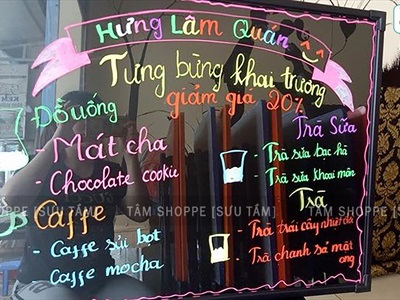 Hưng Lâm Quán
Tưng bừng khai trương
giảm giá 20%
Đồ uống
- Mát cha
Chocolate cookie
Caffe
- Caffe sủi bọt
Caffe mocha
Trà Sữa
- Trà sữa bạc hà
- Trà sữa khoai môn
Trà
- Trà trái cây nhiệt đới
- Trà chanh sả mật
ong
SHOPPE [SƯU TẦM]
TÂM SHOPPE [SƯU TẦM]
TÂM SHOPPE